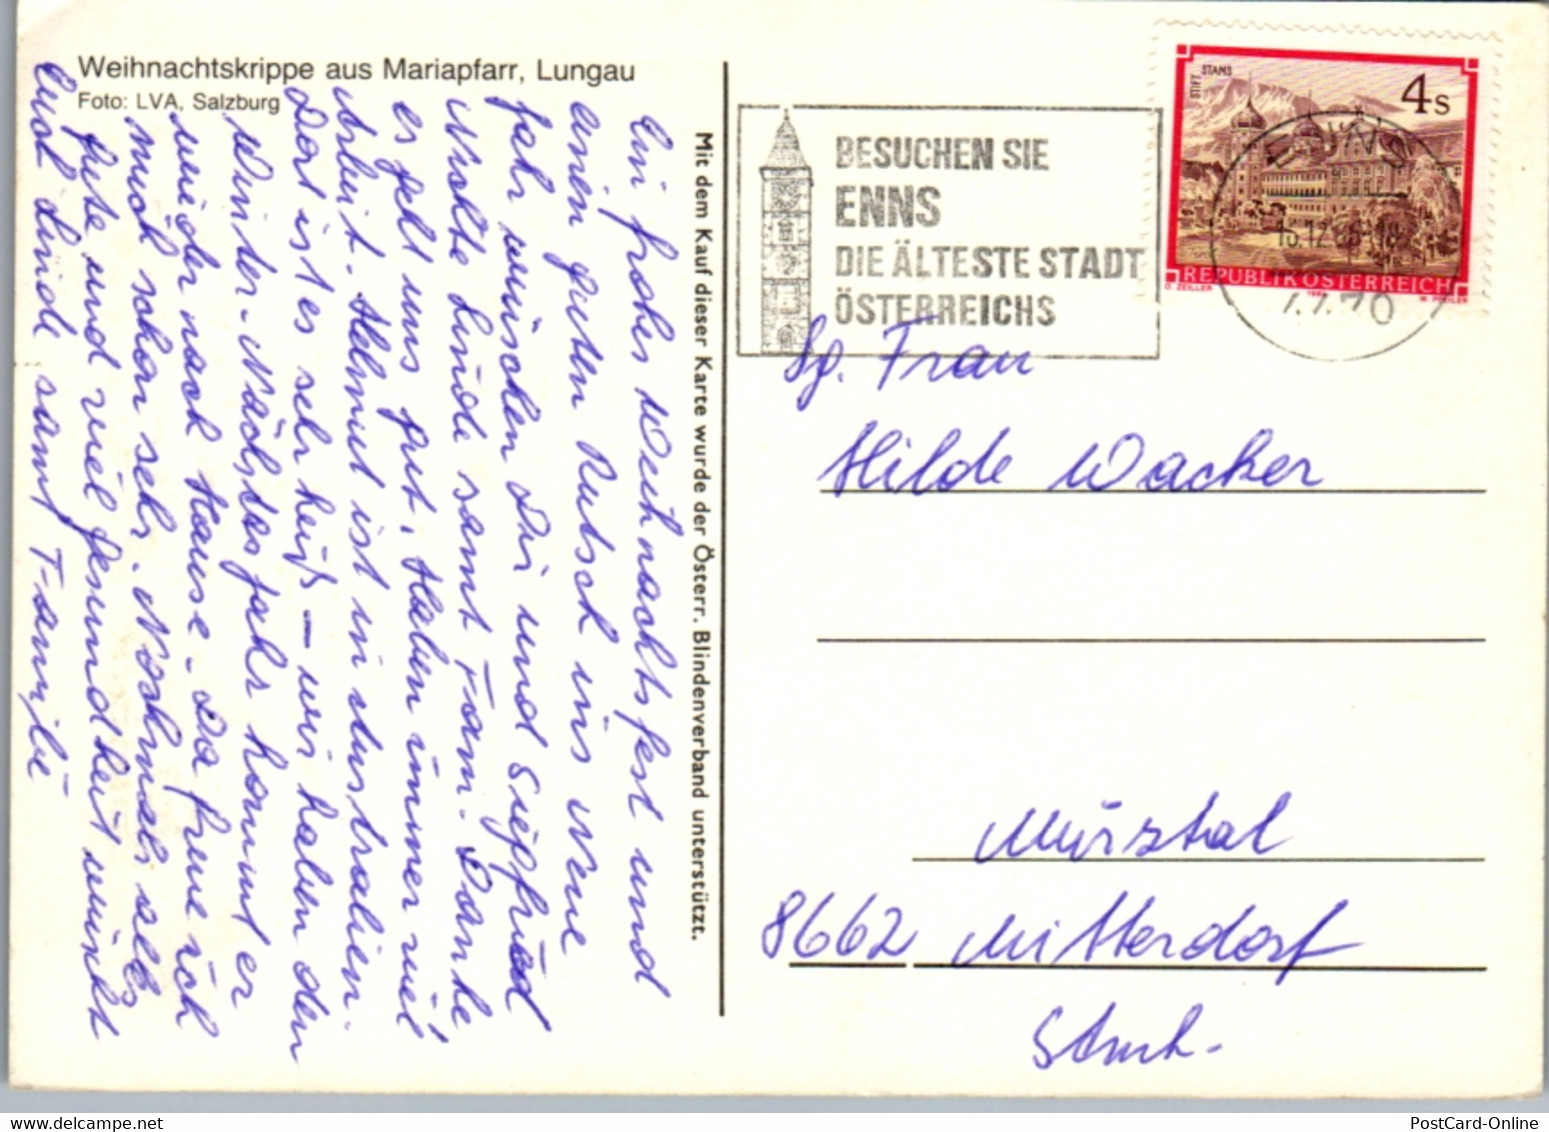 Weihnachtskrippe aus Mariapfarr, Lungau
Foto: LVA, Salzburg
Ein frohes Weihnachtsfest und
einen guten Rutsch ins neue
Jahr wünschen Dir und Siegfried
Nichte Linde samt Fam. Danke
es geht uns gut, haben immer viel
Arbeit. Helmut ist in Australien.
Dort ist es sehr heiß – wir haben den
Winter. Nächstes Jahr kommt er
wieder nach Hause. Da freue ich
mich schon sehr. Nochmals alles
Gute und viel Gesundheit wünscht
Euch Linde samt Familie
Mit dem Kauf dieser Karte wurde der Österr. Blindenverband unterstützt.
BESUCHEN SIE
ENNS
DIE ÄLTESTE STADT
ÖSTERREICHS
STIFT STAMS
4s
REPUBLIK ÖSTERREICH
O. ZEILLER
ENNS
Sg. Frau
Hilde Wacker
Mürztal
8662 Mitterdorf
Stmk.
PostCard-Online